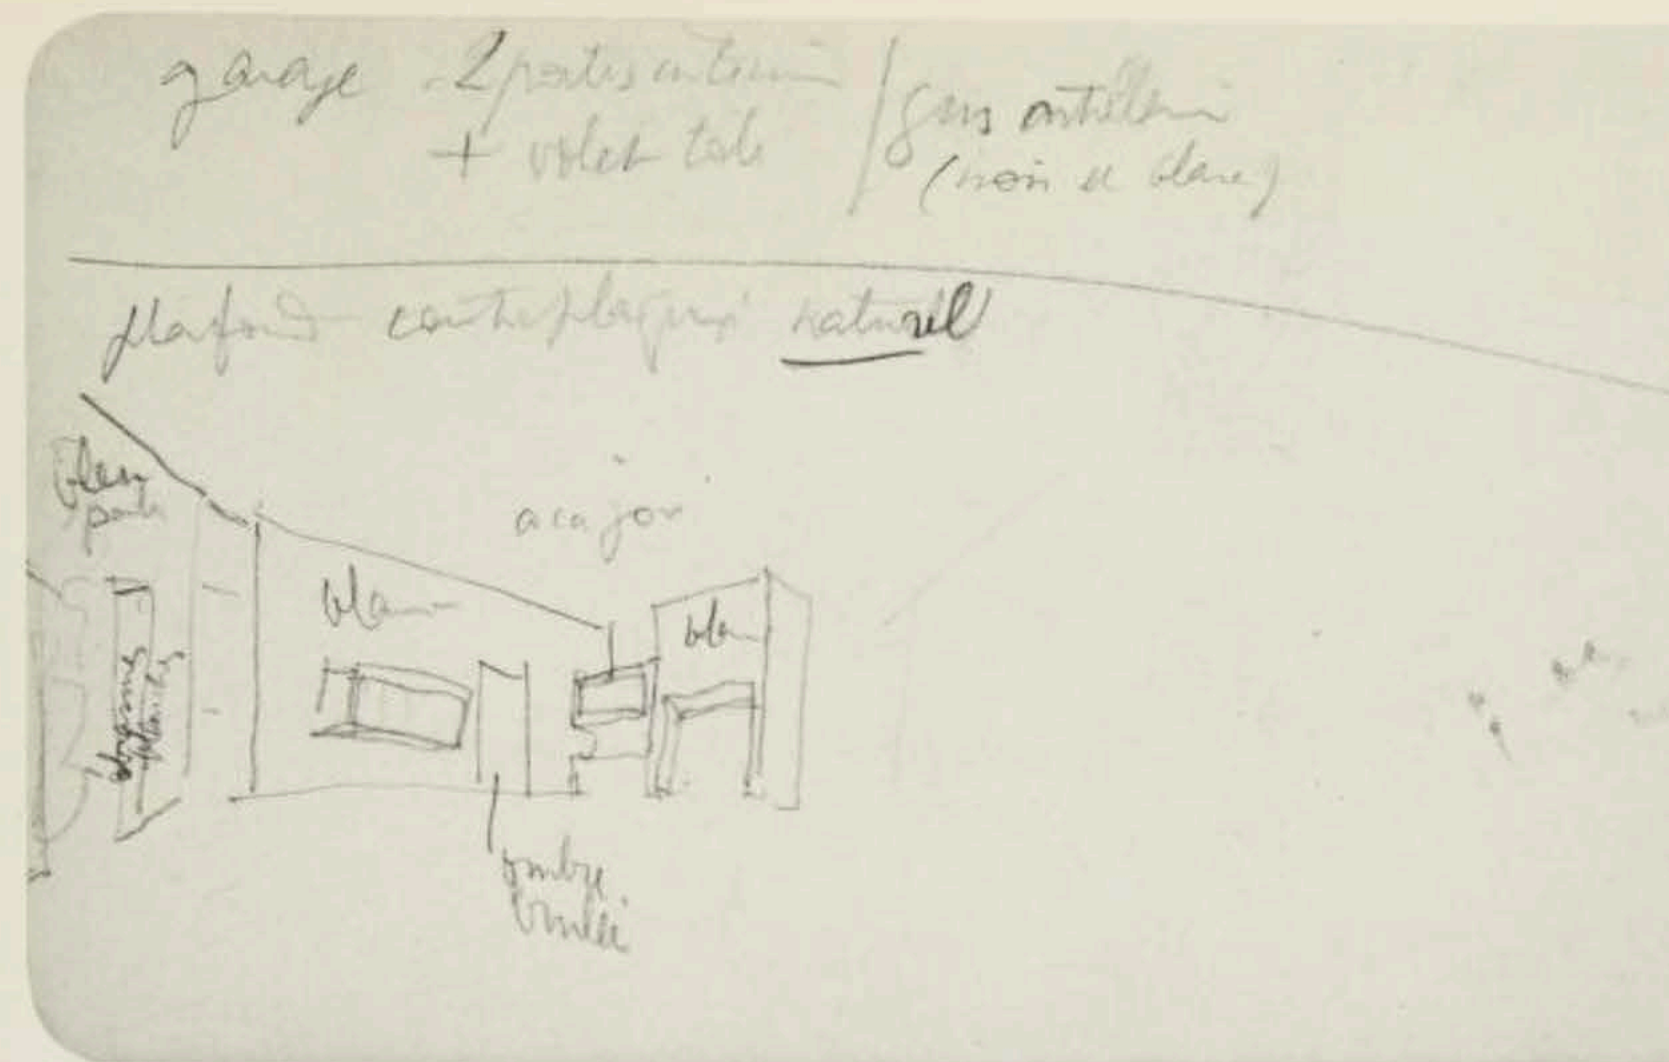 garage 2 portes
+ volet tole
gris artillerie
(noir et blanc)
plafond contreplaqué naturel
bleu
acajou
blanc
blanc
ombre
brulée